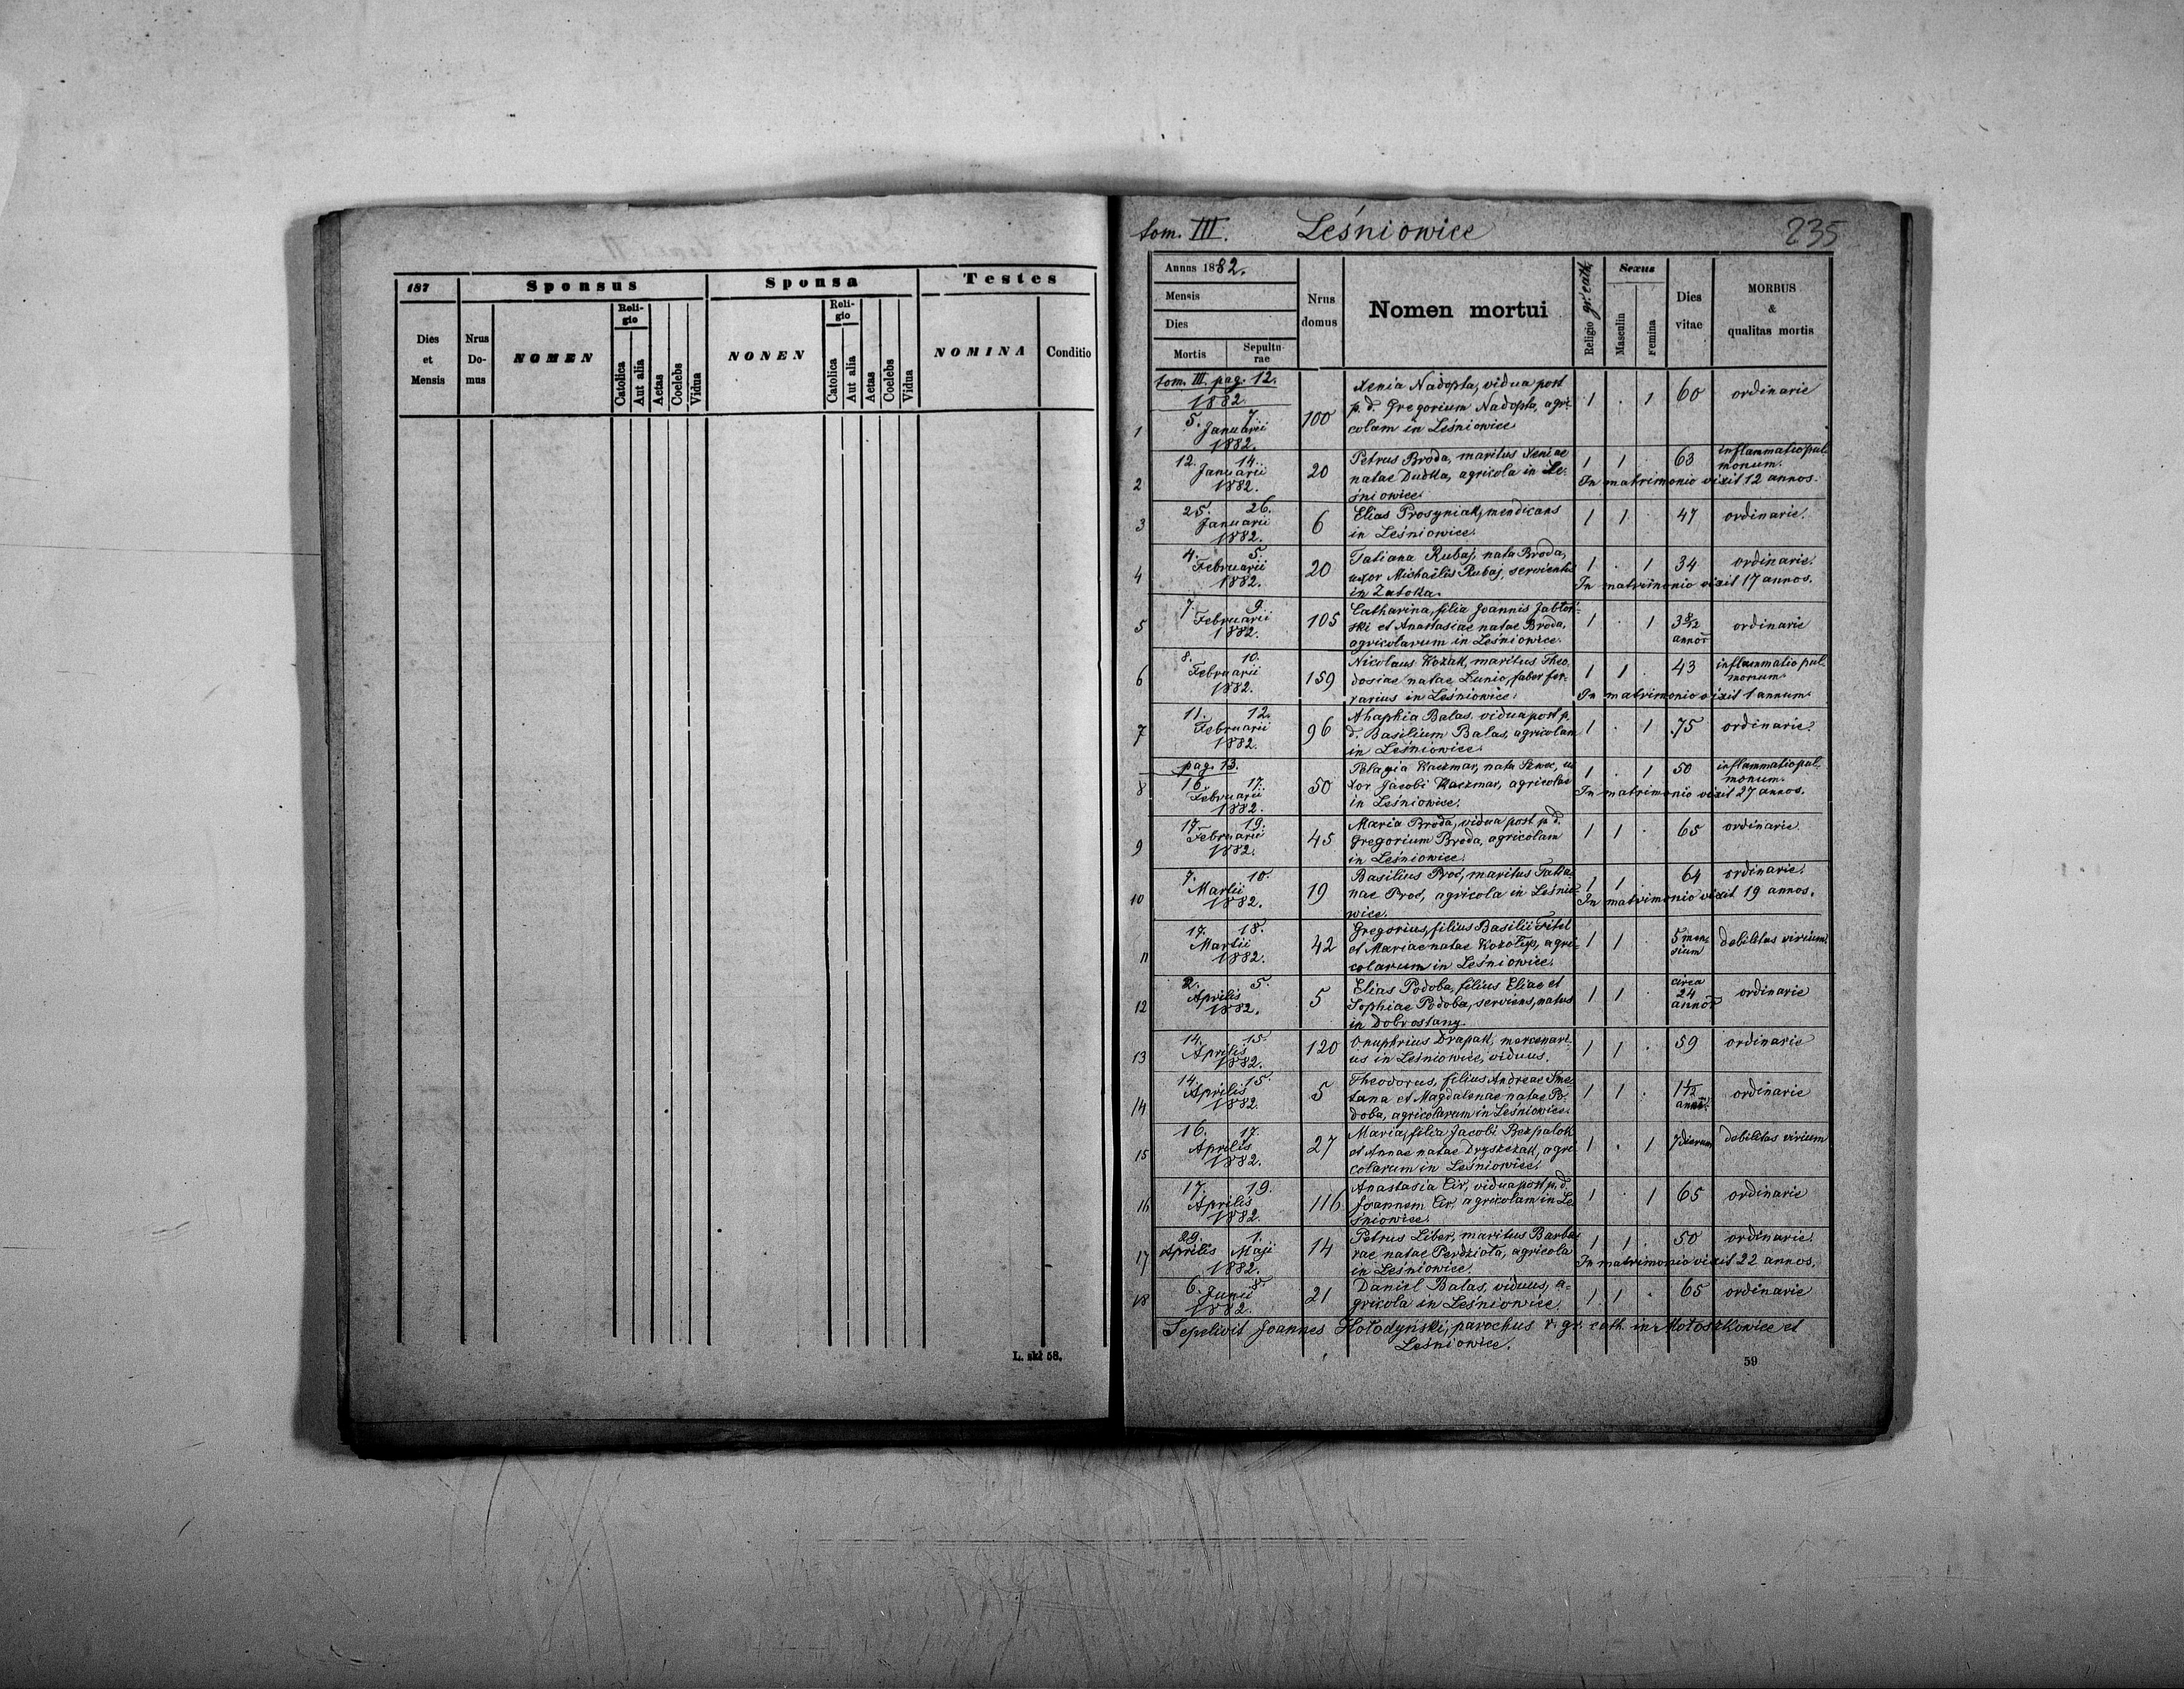 187
Sponsus
Sponsa
Testes
Dies et Mensis
Nrus Do- mus
NOMEN
Reli- gio
Catolica
Aut alia
Aetas
Coelebs
Vidua
NONEN
Reli- gio
Catolica
Aut alia
Aetas
Coelebs
Vidua
NOMINA
Conditio
L. skł 58.
tom. III. Leśniowice 235
Annus 1882.
Mensis
Dies
Mortis
Sepultu- rae
Nrus domus
Nomen mortui
Religio gr. cath.
Sexus
Masculin
Femina
Dies vitae
MORBUS & qualitas mortis
tom. III. pag. 12.
1882.
1 5. 7. Januarii 1882. 100
Xenia Nadopta, vidua post
p. d. Gregorium Nadopta, agri-
colam in Leśniowice
1 . 1 60 ordinarie
2 12. 14. Januarii 1882. 20
Petrus Broda, maritus Xeniae
natae Dudka, agricola in Le-
śniowice.
1 1 . 63 inflammatio pul-
monum.
In matrimonio vixit 12 annos.
3 25. 26. Januarii 1882. 6
Elias Prosyniak, mendicans
in Leśniowice.
1 1 . 47 ordinarie.
4 4. 5. Februarii 1882. 20
Tatiana Rubaj, nata Broda,
uxor Michaëlis Rubaj, servientis
in Zatoka.
1 . 1 34 ordinarie.
In matrimonio vixit 17 annos.
5 7. 9. Februarii 1882. 105
Catharina, filia Joannis Jabłoń-
ski et Anastasiae natae Broda,
agricolarum in Leśniowice.
1 . 1 3 8/12 annor ordinarie
6 8. 10. Februarii 1882. 159
Nicolaus Kozak, maritus Theo-
dosiae natae Lunio, faber fer-
rarius in Leśniowice.
1 1 . 43 inflammatio pul-
monum.
In matrimonio vixit 1 annum.
7 11. 12. Februarii 1882. 96
Ahaphia Balas, vidua post p.
d. Basilium Balas, agricolam
in Leśniowice.
1 . 1 75 ordinarie.
pag. 13.
8 16. 17. Februarii 1882. 50
Pelagia Kaczmar, nata Szwec, u-
xor Jacobi Kaczmar, agricolae
in Leśniowice.
1 . 1 50 inflammatio pul-
monum.
In matrimonio vixit 27 annos.
9 17. 19. Februarii 1882. 45
Maria Broda, vidua post p. d.
Gregorium Broda, agricolam
in Leśniowice.
1 1 . 65 ordinarie.
10 7. 10. Martii 1882. 19
Basilius Proć, maritus Tatia-
nae Proć, agricola in Leśnio-
wice.
1 1 . 64 ordinarie.
In matrimonio vixit 19 annos.
11 17. 18. Martii 1882. 42
Gregorius, filius Basilii Fitel
et Mariae natae, agri-
colarum in Leśniowice.
1 1 . 5 men-
sium debilitas virium.
12 2. 5. Aprilis 1882. 5
Elias Podoba, filius Eliae et
Sophiae Podoba, serviens, natus
in Dobrostany.
1 1 . circa 24 annor ordinarie
13 14. 15. Aprilis 1882. 120
Onuphrius Drapak, mercenari-
us in Leśniowice, viduus.
1 1 . 59 ordinarie
14 14. 15. Aprilis 1882. 5
Theodorus, filius Andreae Sme-
tana et Magdalenae natae Po-
doba, agricolarum in Leśniowice.
1 1 . 1 1/12 annor. ordinarie
15 16. 17. Aprilis 1882. 27
Maria, filia Jacobi Bezpalok
et Annae natae Dryszczak, agri-
colarum in Leśniowice.
1 . 1 7 dierum debilitas virium
16 17. 19. Aprilis 1882. 116
Anastasia Cir, vidua post p. d.
Joannem Cir, agricolam in Le-
śniowice.
1 . 1 65 ordinarie
17 29. Aprilis 1. Maji 1882. 14
Petrus Liber, maritus Barba-
rae natae Perdzioła, agricola
in Leśniowice.
1 1 . 50 ordinarie.
In matrimonio vixit 22 annos.
18 6. 8. Junii 1882. 21
Daniel Balas, viduus, a-
gricola in Leśniowice.
1 1 . 65 ordinarie
Sepelivit Joannes Hołodyński, parochus r. gr. cath. in Mołoszkowice et
Leśniowice.
59